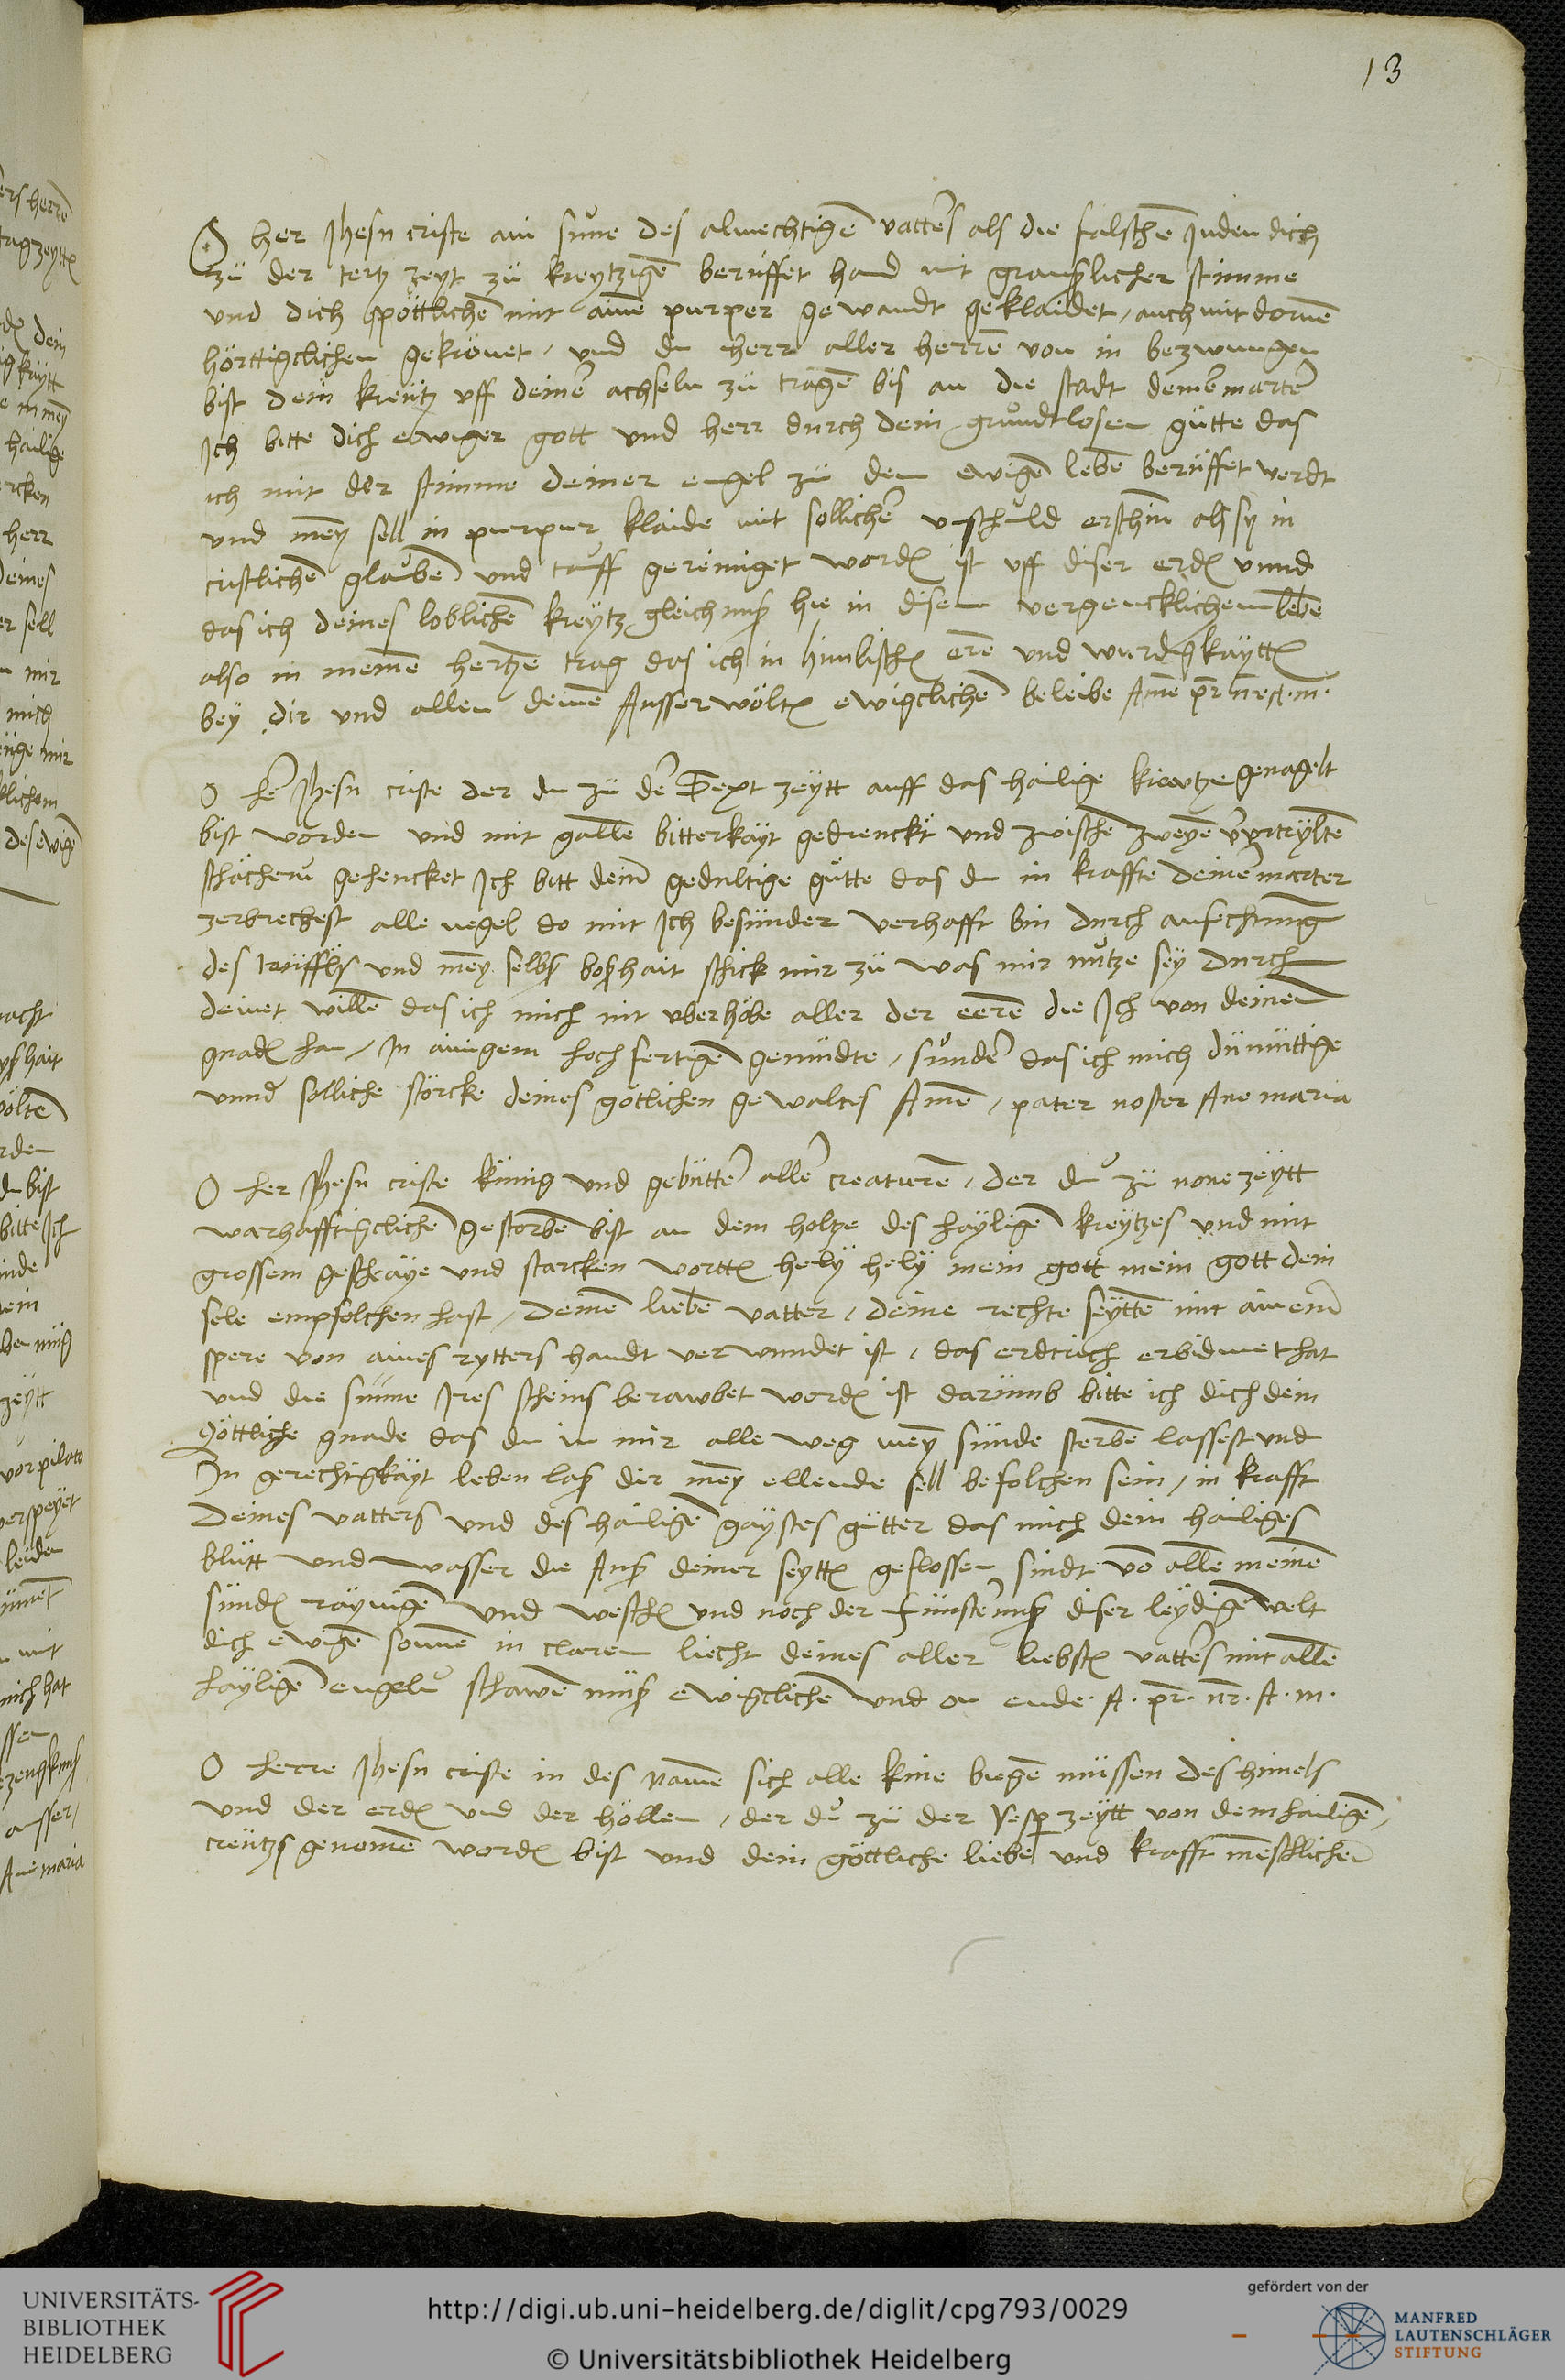 13
O her Jhesu criste ain sune des almechtigē vatters als die falschē Juden dich
zü der tertz zeyt zü kreytzigē berüffet hand mit grauslicher stimme
vnd dich spöttlichē mit aimē purper gewandt geklaidet / auch mit dornē
hörttigclichen gekrönet / vnd du herr aller herrē von in bezwungen
bist dein kreütz vff deinē achseln zü tragē bis an die stadt deiner marter
Jch bitte dich ewiger gott vnd herr durch dein grundtlosen gütte das
ich mit der stimme deiner engel zü dem ewigē lebē berüffet werdt
vnd mey sell in purpur klaide mit sollicher vnschuld erschin als sy in
cristlichē glaubē vnd tauff gereiniget wordē ist vff diser erdē vnnd
das ich deines loblichē kreytz gleichnus hie in disem vergencklichem lebē
also in meinē hertzē trag das ich in himlischē erē vnd wurdigkaytē
bey dir vnd allen deinē Ausserwöltē ewigclichē beleibe Amē pr nr A. m.
O her Jhesu criste der du zü der Sext zeytt auff das hailige kreutze genagelt
bist worden vnd mit gallē bitterkäyt gedrenckt vnd zwischē zweyē vrtryltē
schächern gehencket Jch bitt deinē gedultige gütte das du in kraffte deiner marter
zerbrechest alle negel do mit Jch besünder verhafft bin durch anfechtung
des teüffels vnd mey selbs boshait schick mir zü was mir nutze sey durch
deinet willē das ich mich nit vberhöbe aller der eerē die Jch von deinen
gnadē han / Jn ainigem hochfertigē gemüdte / sunder das ich mich dümüttige
vnnd solliche störcke deines götlichen gewaltes Amē / pater noster Aue maria
O her Jhesu criste künig vnd gebütter aller creaturē / der du zü none zeytt
warhafftigclichē gestorbē bist an dem holtze des hayligē kreytzes vnd mit
grossem geschräye vnd starcken wortē hely hely mein gott mein gott dein
sele empfolchen hast / deinē liebē vatter / deine rechte seyttē mit ainem
spere von aines rytters handt verwundet ist / das erdtrich erbidmet hat
vnd die sunne Jres scheins berawbet wordē ist darümb bitte ich dich dein
göttliche gnade das du in mir alle weg mey sünde sterbē lassest vnd
Jn gerechtigkäyt leben las dir mey ellende sell befolchen sein / in krafft
deines vatters vnd des hailigē gaystes gütter das mich dein hailiges
blütt vnd wasser die Aus deiner seyttē geflossen sindt vō allē meinē
sündē räynigē vnd weschē vnd noch der finsternus diser leydigē welt
dich ewigē sonnē in clarem liecht deines aller liebstē vatters mit allē
hayligē engeln schawē müs ewigclichē vnd on ende. A. pr. nr. A. m.
O herre Jhesu criste in des namē sich alle knie biegē müssen des himels
vnd der erdē vnd der höllen / der du zü der vesper zeytt von dem hailigē
creützs genomē wordē bist vnd dein göttliche liebe vnd krafft menschlichen
UNIVERSITÄTS-
BIBLIOTHEK
HEIDELBERG
http://digi.ub.uni-heidelberg.de/diglit/cpg793/0029
© Universitätsbibliothek Heidelberg
gefördert von der
MANFRED
LAUTENSCHLÄGER
STIFTUNG